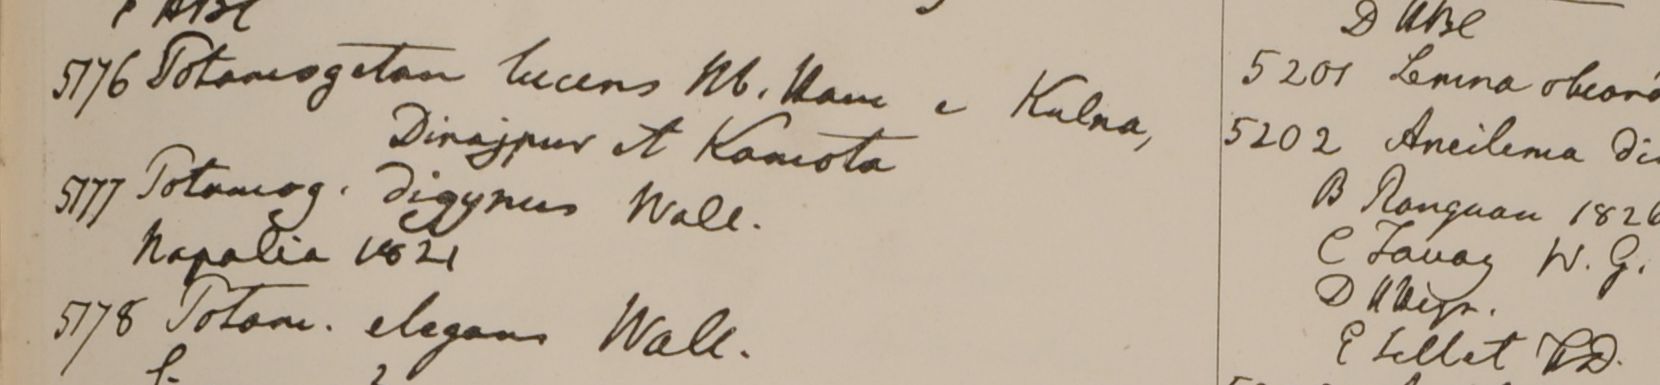 HBC
5176 Potamogeton lucens Hb. Ham e Kulna,
Dinajpur et Kamota
5177 Potamog. digynus Wall.
Napalia 1821
5178 Potam. elegans Wall.
D HBC
5201 Lemna obcord
5202 Aneilema di
B Rangoon 1826
C Tavoy W. G.
D HWigh.
E Sillet FD.